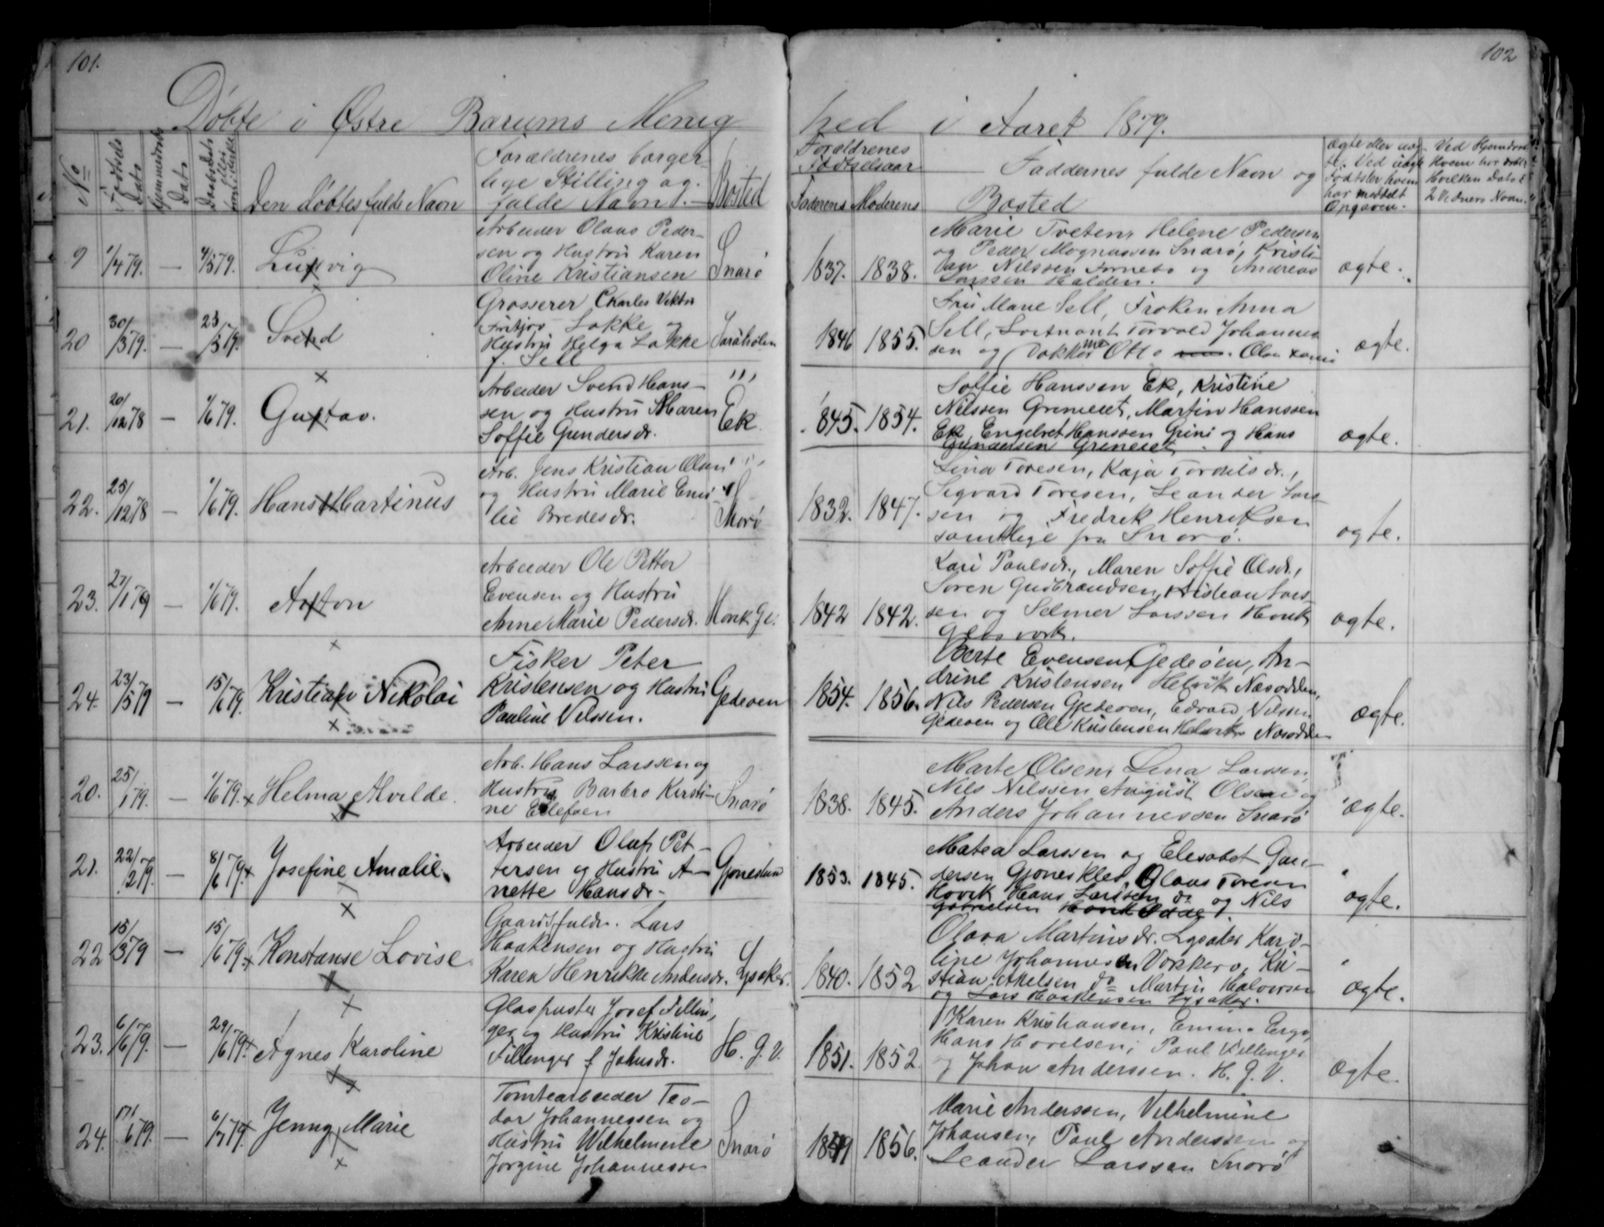 101.
102
Døbte i Østre Bærums Menig
hed i Aaret 1879.
No
Fødsels Dato
Hjemmedøbt Dato
Daabsdato
Den døbtes fulde Navn
Forældrenes borger-
lige Stilling og
fulde Navn.
Bosted
Forældrenes
Fødselsaar
Faderens Moderens
Faddernes fulde Navn og
Bosted
ægte eller uæg-
te. Ved uægte
Fødsler hvem
har meddelt
Opgaven.
Ved Hjemdøbt
hvem har døbt
hvilken Dato &
2 Vidners Navn.
9 1/4 79. — 4/5 79. Ludvig
Arbeider Olaus Peder-
sen og Hustru Karen
Oline Kristiansen
Snarø
1837. 1838.
Marie Tveten, Helene Pedersen
og Peder Mognussen Snarø, Kristi-
an Nilssen Fornebo og Andreas
Larssen Halden.
ægte.
20 30/3 79. — 23/5 79. Svend
Grosserer Charles Viktor
Fritjof Løkke og
Hustru Helga Løkke
f. Sell
1846 1855.
Fru Marie Sell, Frøken Anna
Sell, Løitnant Torvald Johannes
sen og Doktor Otto
ægte.
21. 20/12 78 — 1/6 79. Gustav.
Arbeider Svend Hans-
sen og Hustru Maren
Soffie Gundersdr.
Ek
1845. 1854.
Soffie Hanssen Ek, Kristine
Nilssen Greneiet, Martin Hanssen
Ek, Engebret Hanssen Grini og Hans
Gundersen Greneiet
ægte.
22. 25/12 78 — 1/6 79. Hans Martinus
Arb. Jens Kristian Olsen
og Hustru Marie Emi
lie Bredesdr.
Snarø
1832. 1847.
Lina Toresen, Kaja Torkilsdr.,
Sigvard Toresen, Leander Lars
sen og Fredrik Henriksen
samtlige fra Snarø.
ægte.
23. 27/1 79 — 1/6 79. Anton
Arbeider Ole Petter
Evensen og Hustru
Anne Marie Pedersdr.
Høvik Gl.
1842 1842.
Kari Paulsdr., Maren Soffie Olsdr.,
Søren Gudbrandsen, Kristian Lars
sen og Selmer Larssen Høvik
Glasverk.
ægte.
24. 23/5 79 — 15/6 79. Kristian Nikolai
Fisker Peter
Kristensen og Hustru
Pauline Nilssen.
Gedeøen
1854. 1856.
Berte Evensen Gedeøen, An-
drine Kristensen Helvik Næsodden,
Nils Pedersen Gedeøen, Edvard Nilssen
Gedeøen og Ole Kristensen Helvik Næsodden
ægte.
20. 25/1 79. — 1/6 79. Helma Alvilde.
Arb. Hans Larssen og
Hustru Barbro Kirsti-
ne Ellefsen
Snarø
1838. 1845.
Marte Olsen, Lina Larssen,
Nils Nilssen August Olsen og
Anders Johannessen Snarø
ægte.
21. 22/2 79. — 8/6 79. Josefine Amalie.
Arbeider Oluf Pet-
tersen og Hustru A-
nette Hansdr.
1853. 1845.
Matea Larssen og Elisabet Gun-
dersen Gjønesklev, Olaus Toresen
Høvik, Hans Larssen do og Nils
ægte.
22 15/3 79 — 15/6 79. Konstanse Lovise
Gaardsfuldm. Lars
Haakensen og Hustru
Karen Henrikke Andersdr.
Lysaker.
1840. 1852
Olava Martinsdr. Lysaker Karo-
line Johannessen Vækkerø, Kri-
stian Akelsen do Martin Halvorsen
og Lars Haakensen Lysaker.
ægte.
23. 6/6 79. — 29/6 79. Agnes Karoline
Glaspuster Josef Fillin,
ger og Hustru Kristine
Fillinger f. Johnsdr.
H. G. V.
1851. 1852
Karen Kristiansen, Emma Berg,
Hans Hovelsen, Paul Fillinger
og Johan Anderssen. H. G. V.
ægte.
24. 17/6 79. — 6/7 79. Jenny Marie
Tomtearbeider Teo-
dor Johannessen og
Hustru Wilhelmine
Jørgine Johannessen
Snarø
1849 1856.
Marie Anderssen, Vilhelmine
Johansen, Paul Anderssen og
Leander Larssen Snarø